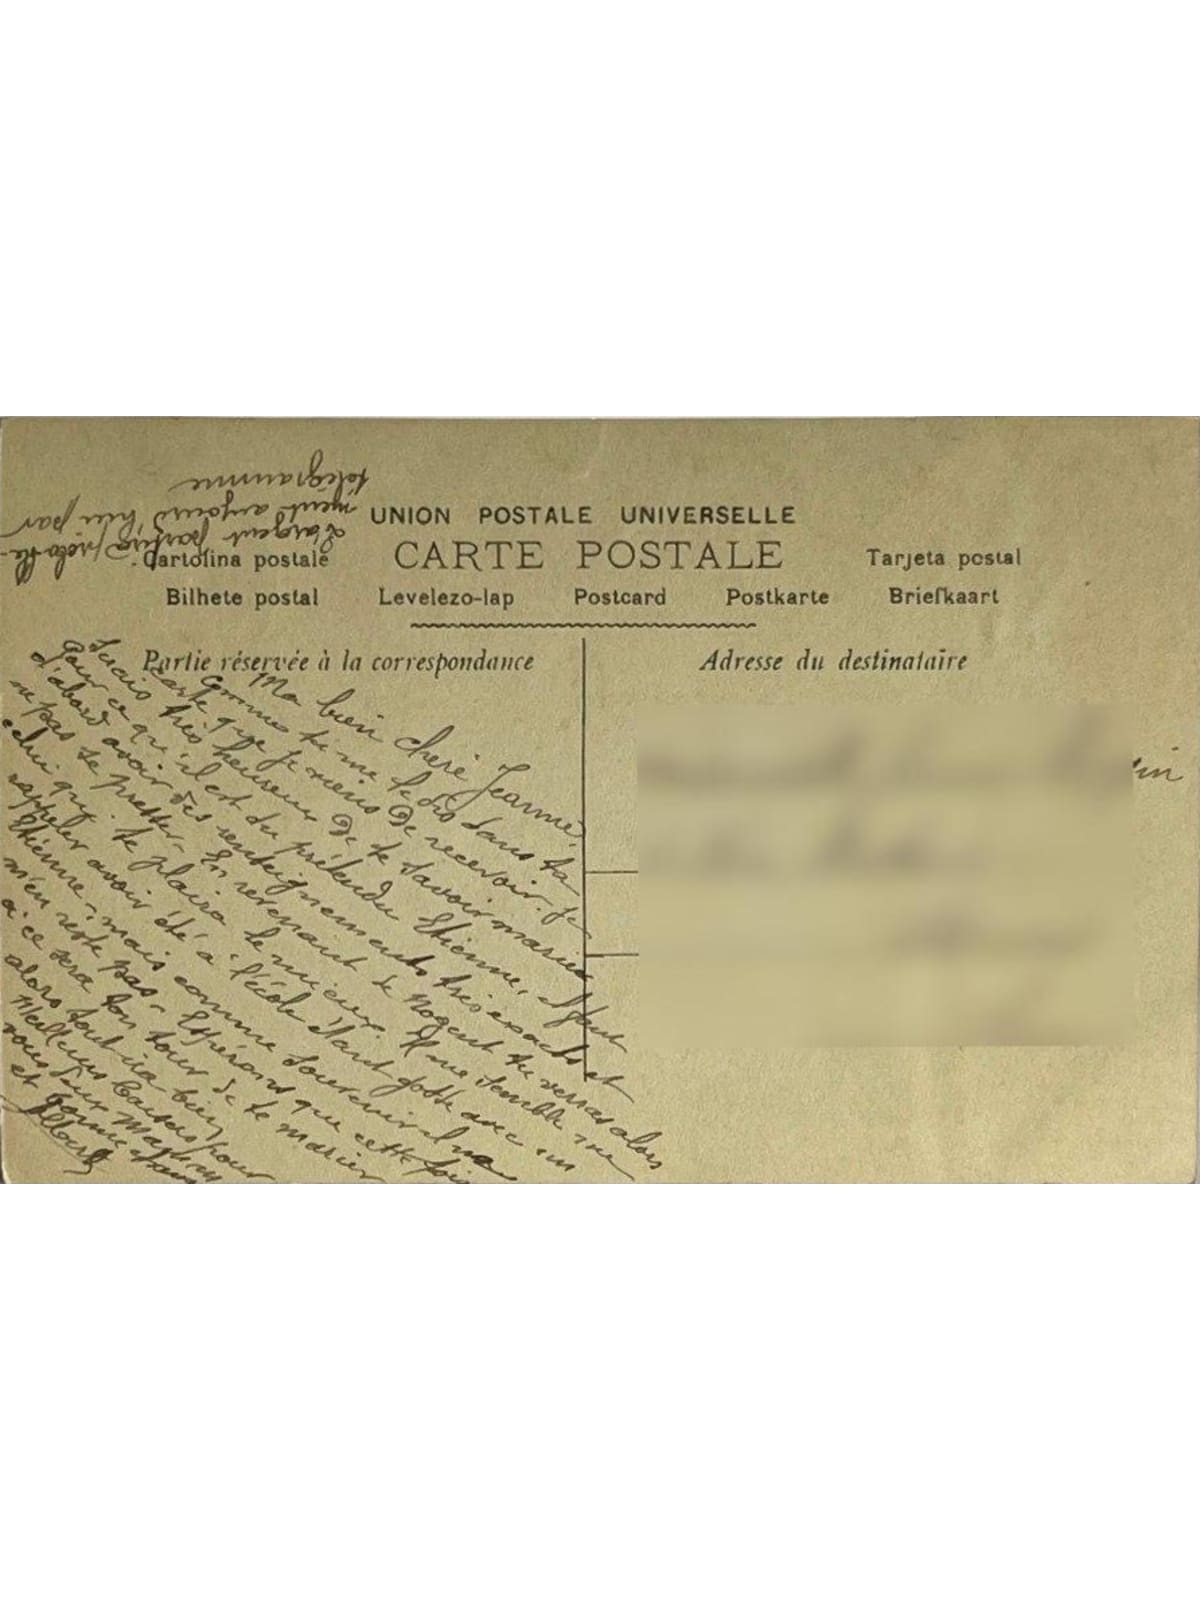 UNION POSTALE UNIVERSELLE
CARTE POSTALE
Cartolina postale
Tarjeta postal
Bilhete postal Levelezo-lap Postcard Postkarte Briefkaart
Partie réservée à la correspondance
Adresse du destinataire
Ma bien cheré Jeanne,
Comme tu me le dis dans ta
carte que je viens de recevoir. Je
serais très heureux de te savoir mariée
Pour ce qu'il est du prétendu Etienne, il faut
d'abord avoir des renseignements très exacts et
ne pas se presser. En revenant de Nogent tu verras alors
celui qui te plaira le mieux. Il me semble me
rappeler avoir été à l'école étant gosse avec un
Etienne, mais comme souvenir il ne
m'en reste pas. Espérons que cette fois
ci ce sera ton tour de te marier
alors tout ira bien
Meilleurs Baisers pour
vous deux Maman
et bonne
Albert
L'argent partira
ment aujourd'hui par
télégramme
in